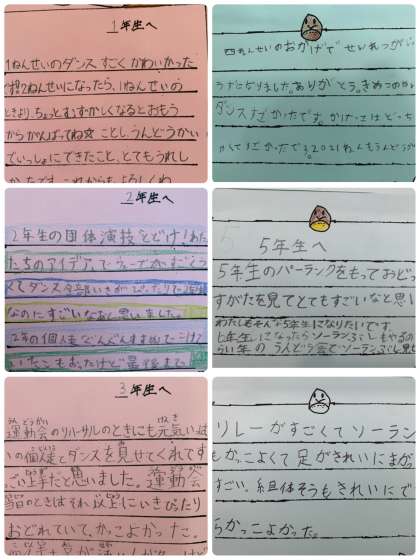 1年生へ
1ねんせいのダンスすごくかわいかった
2ねんせいになったら、1ねんせいの
ときより、ちょっとむずかしくなるとおもう
からがんばってね☆ことし、うんどうかい
でいっしょにできたこと、とてもうれし
かったです。これからも、よろしくね
四ねんせいのおかげで せいれつがじ
うずになりました。ありがとう。きめつのか
ダンスすごかったです。かけっこはどっち
2年生へ
2年生の団体演技とどけ!あた
たちのアイデアで
くてダンス全部いきがぴったりで2年生
なのにすごいなあと思いました。
2年の個人走ぐんぐんすすめでこけ
いたこもおったけど最後まで
5年生へ
5年生のパーランクをもっておどっ
すがたを見てとてもすごいなと思
わたしもそんな5年生になりたいです。
6年生になったらソーランぶしもやるの
らい年のうんどう会でソーランぶし見
3年生へ
運動会のリハーサルのときにも元気いっぱ
いの個走とダンスを見せてくれてす
ごい上手だと思いました。運動
当日のときはそれ以上にいきぴったり
おどれていて、かっこよかった。
リレーがすごくてソーラン
もかっこよくて足がきれいにまが
すごい、組体そうもきれいにで
らかっこよかった。